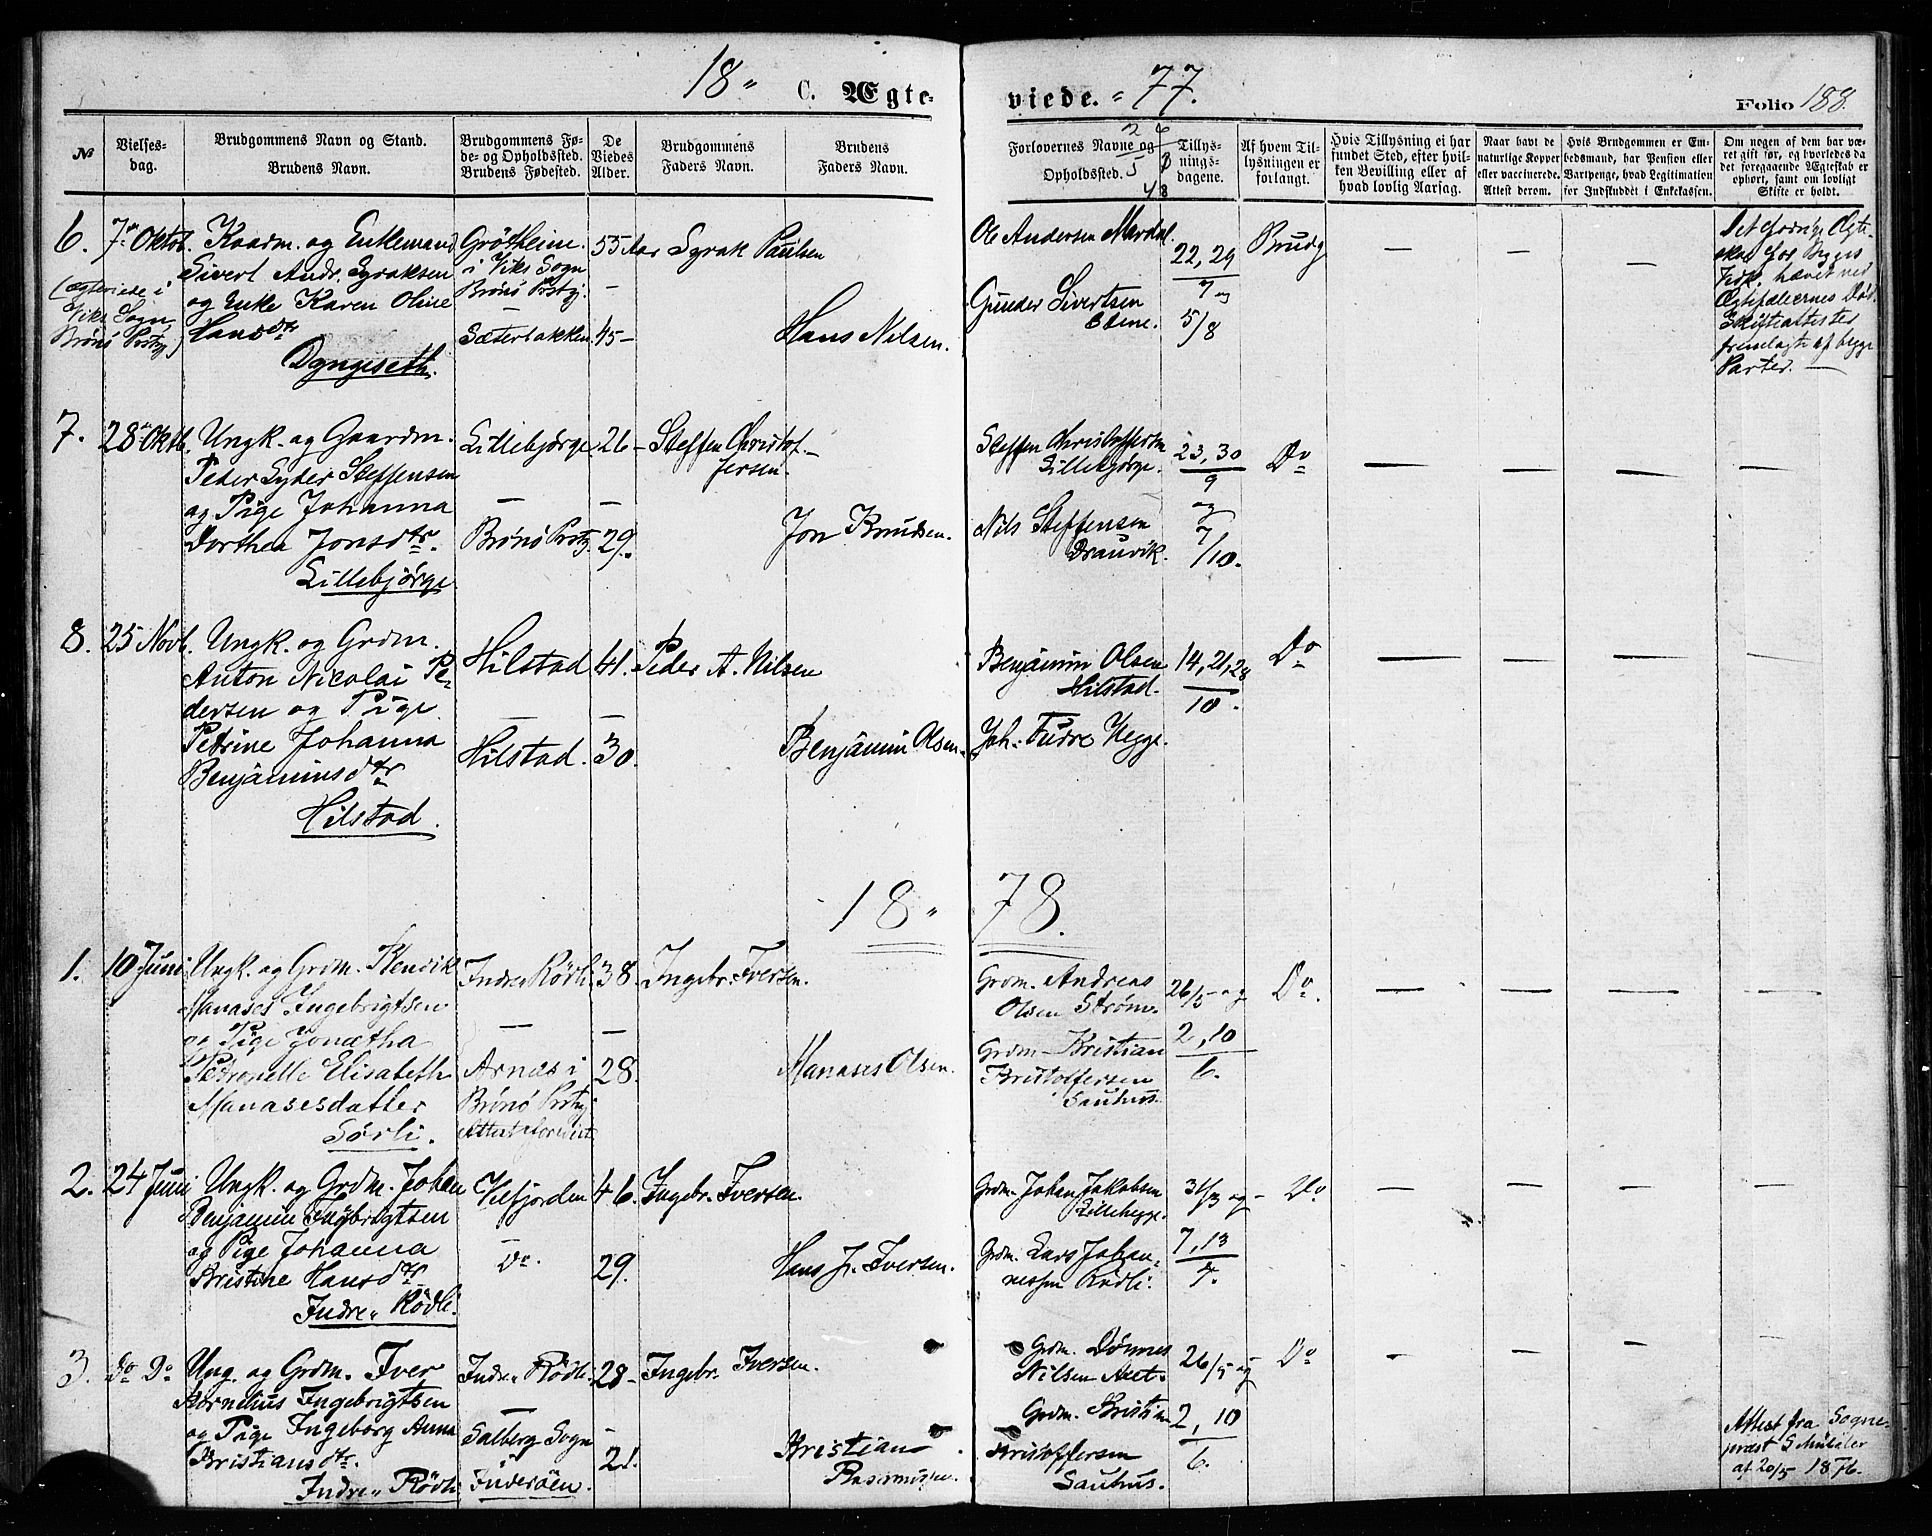 18 " C. Ægteviede. " 77.
Folio 188.
№
Vielses-
dag.
Brudgommens Navn og Stand.
Brudens Navn.
Brudgommens Fø-
de- og Opholdssted.
Brudens Fødested.
De
Viedes
Alder.
Brudgommens
Faders Navn.
Brudens
Faders Navn.
Forlovernes Navne og
Opholdssted.
Tillys-
nings-
dagene.
Af hvem Til-
lysningen er
forlangt.
Hvis Tillysning ei har
fundet Sted, efter hvil-
ken Bevilling eller af
hvad lovlig Aarsag.
Naar havt de
naturlige Kopper
eller vaccinerede.
Attest derom.
Hvis Brudgommen er Em-
bedsmand, har Pension eller
Vartpenge, hvad Legitimation
for Indskuddet i Enkekassen.
Om nogen af dem har væ-
ret gift før, og hvorledes da
det foregaaende Ægteskab er
ophørt, samt om lovligt
Skifte er holdt.
6. 7de Oktob.
(Ægteviede i
Viks Sogn
Brønø Prstgj)
Kaarm. og Enkemand
Sivert Andr. Syraksen
og Enke Karen Oline
Hansdtr
Dyngeseth.
Grøtheim
i Viks Sogn
Brønø Prstgj.
—
Sæterbakken
55 Aar
—
45 —
Syrak Paulsen
Hans Nilsen.
Ole Andersen Mardal.
Gunder Sivertsen
22, 29
7 og
5/8
Brudg
—
—
—
Det forrige Ægte-
skab for Begges
Vedk. hævet ved
Ægtefællernes Død.
Skifteattester
fremlagte af begge
Parter. —
7. 28de Oktb.
Ungk. og Gaardm.
Peder Lyder Steffensen
og Pige Johanna
Dorthea Jonsdtr.
Lillebjørge
Lillebjørge
—
Brønø Prstgj.
26 —
—
29.
Steffen Christof-
fersen.
Jon Knudsen.
Steffen Christoffersen
Lillebjørge.
Nils Steffensen
23, 30
9
og
7/10.
Do
—
—
—
—
8. 25 Novb.
Ungk. og Grdm.
Anton Nicolai Pe-
dersen og Pige
Petrine Johanna
Benjaminsdtr
Hilstad.
Hilstad
—
Hilstad.
41.
—
30.
Peder A. Nilsen
Benjamin Olsen.
Benjamin Olsen
Hilstad.
Joh. Indre Hegge.
14, 21, 28
10.
Do
—
—
—
—
18 " 78.
1. 10 Juni
Ungk. og Grdm. Henrik
Manases Ingebrigtsen
og Pige Jonetha
Petronelle Elisabeth
Manasesdatter
Sørli.
Indre Rødli
—
Arnes i
Brønø Prstgj
38.
—
28.
Ingebr. Iversen.
Manases Olsen.
Grdm. Andreas
Olsen Strøm.
Grdm. Kristian
Kristoffersen
Sauhus.
26/5 og
2, 10
6.
Do.
—
—
—
—
2. 24 Juni
Ungk. og Grdm. Johan
Benjamin Ingebrigtsen
og Pige Johanna
Kristine Hansdtr.
Indre " Rødli.
Velfjorden
—
Do.
46.
29.
Ingebr. Iversen.
Hans J. Iversen.
Grdm. Johan Jakobsen
Lillehegge.
Grdm. Lars Johan-
nessen Rødli.
31/3 og
7, 13
4.
Do
—
—
—
—
3. Do Do
Ung. og Grdm. Iver
Kornelius Ingebrigtsen
og Pige Ingeborg Anna
Kristiansdtr.
Indre " Rødli
Indre " Rødli.
—
Salberg Sogn
Inderøen.
28 —
—
21.
Ingebr. Iversen.
Kristian
Rasmussen.
Grdm. Dønnes
Nilsen
Grdm. Kristian
Kristoffersen
Sauhus.
26/5 og
2, 10
6.
Do
—
—
—
Attest fra Sogne-
præst
af 20/5 1876.